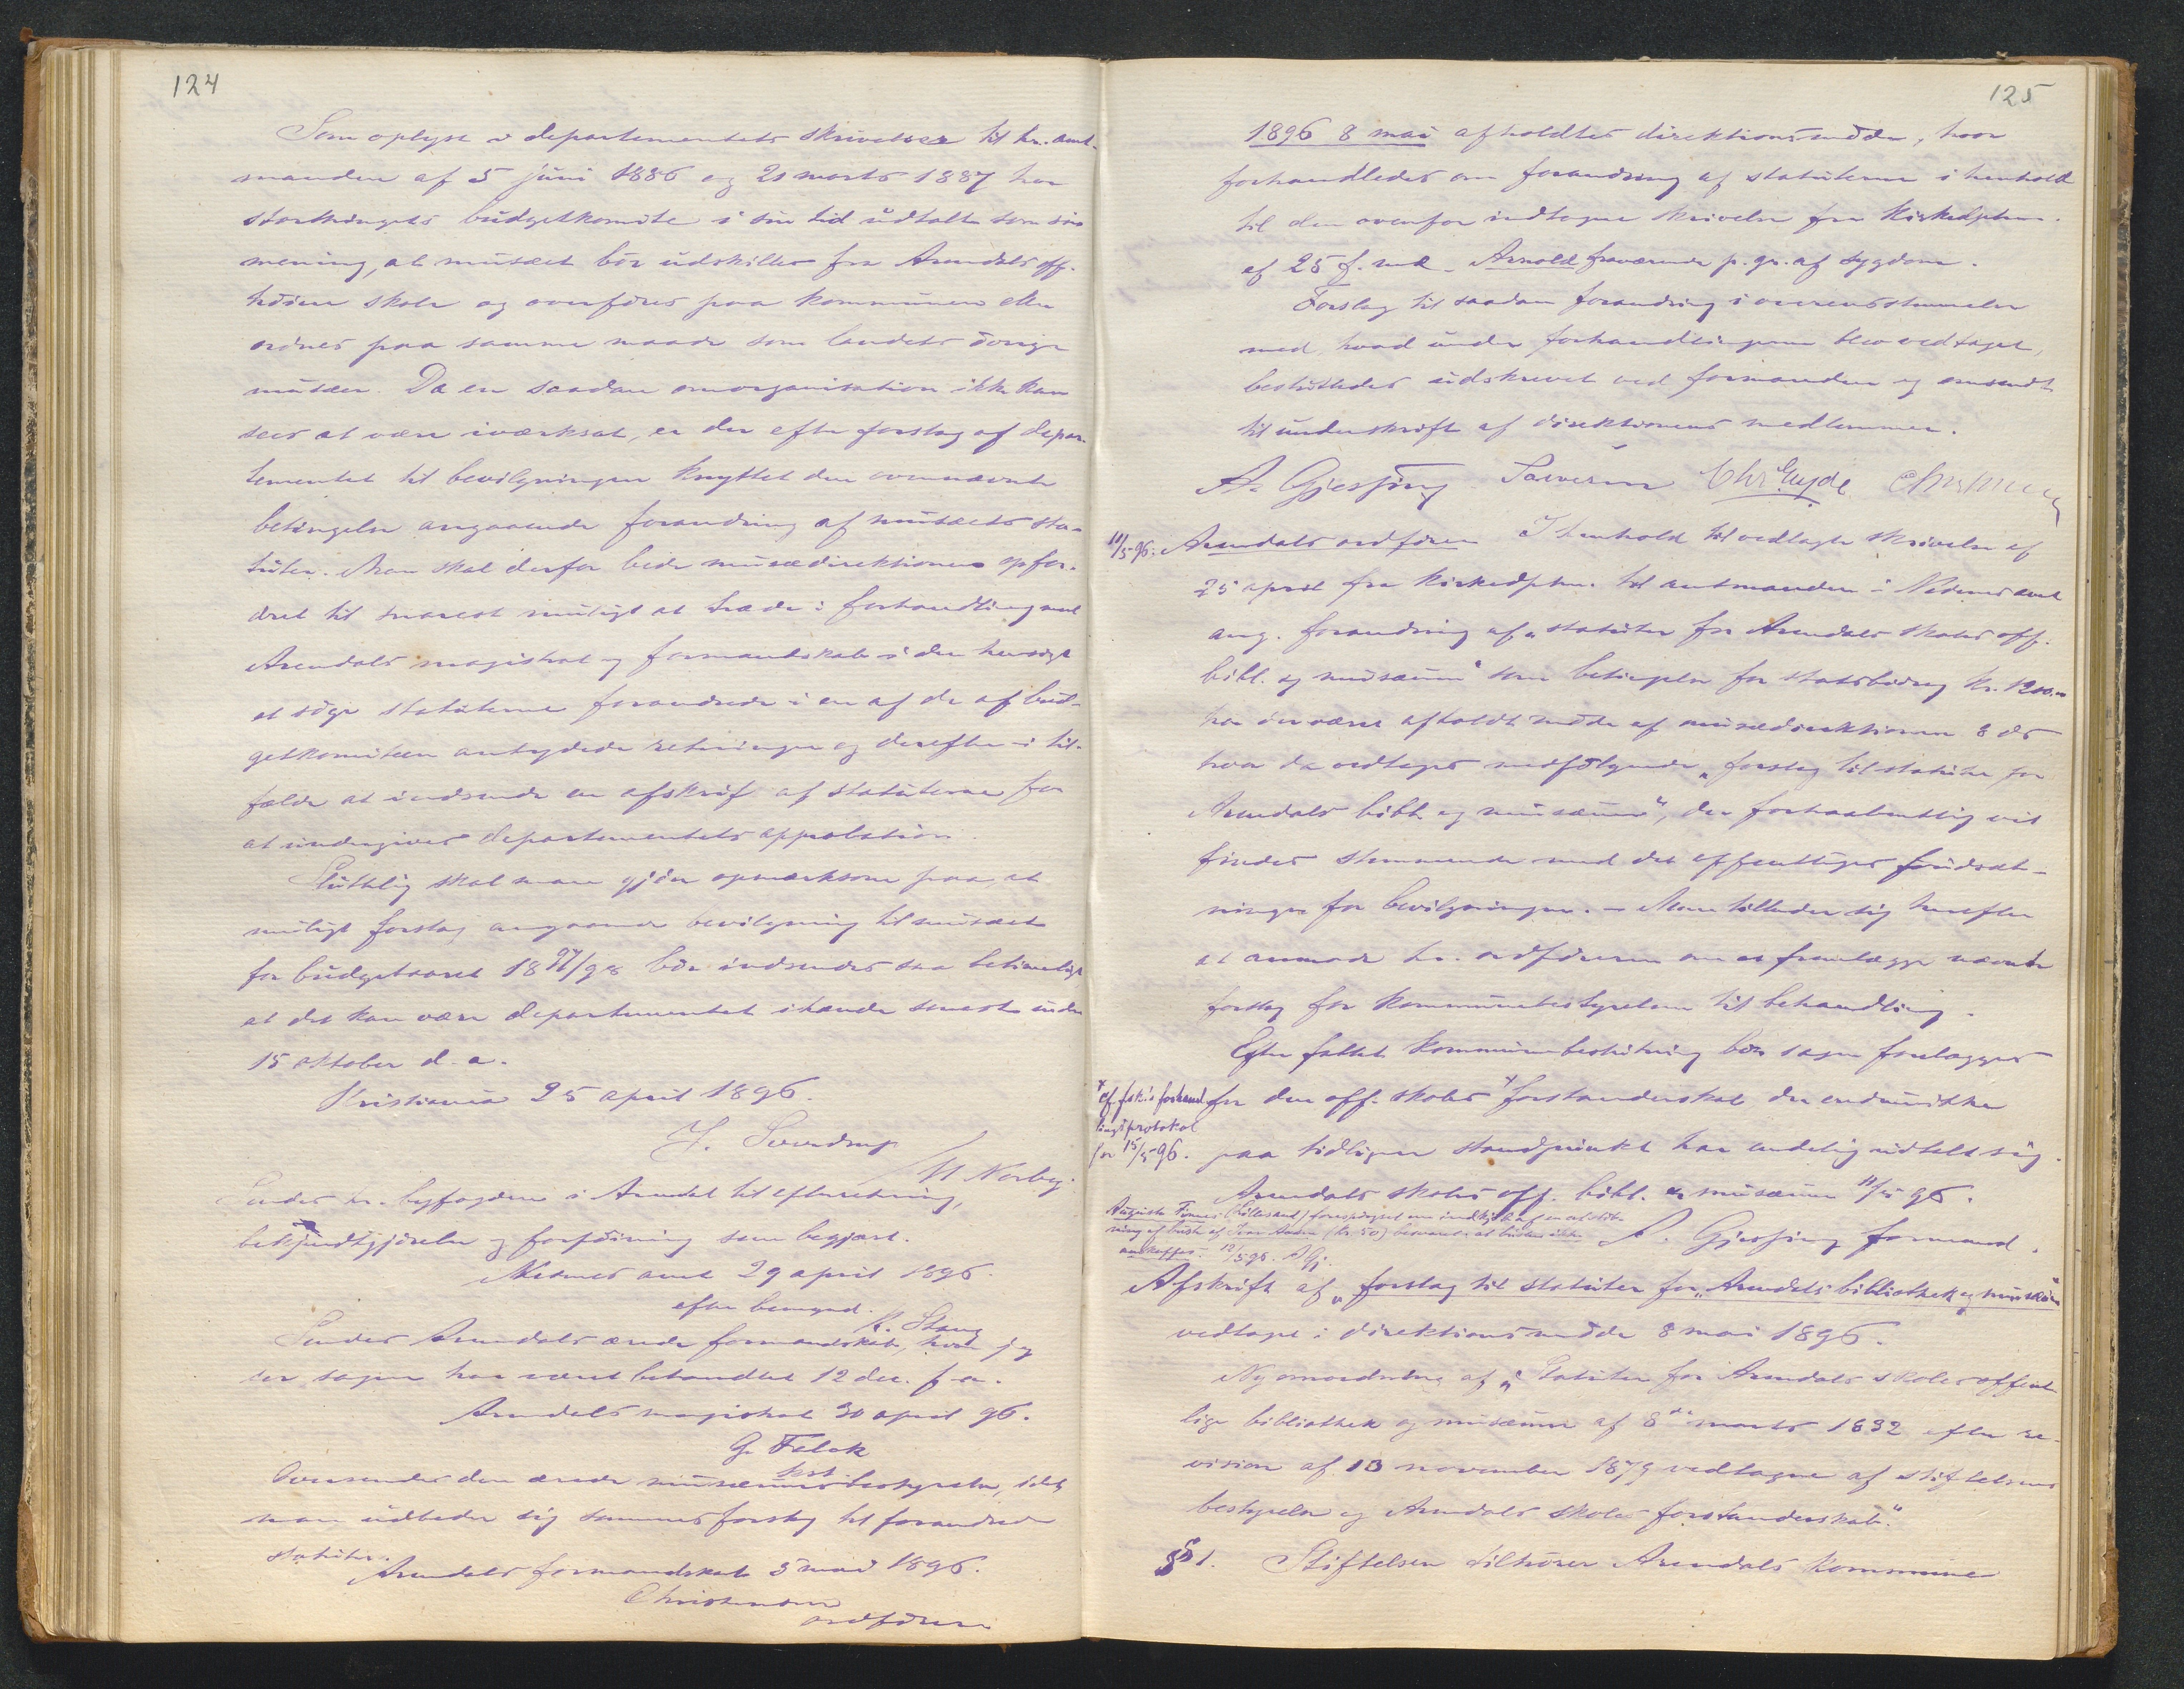 124
Som oplyst i departementets skrivelser til hr. amt-
manden af 5 juni 1886 og 21 marts 1887 har
storthingets budgetkomite i sin tid udtalt som sin
mening, at musæet bör udskilles fra Arendals off.
höiere skole og overföres paa kommunen eller
ordnes paa samme maade som landets övrige
musæer. Da en saadan omorganisation ikke kan
sees at være iværksat, er der efter forslag af depar-
tementet til bevilgningen knyttet den ovennævnte
betingelse angaaende forandring af musæets sta-
tuter. Man skal derfor bede musædirektionen opfor-
dret til snarest muligt at træde i forhandling med
Arendals magistrat og formandskab i den hensigt
at söge statuterne forandrede i en af de af bud-
getkomiteen antydede retninger og derefter i til-
fælde at indsende en afskrift af statuterne for
at undergives departementets approbation.
Sluttelig skal man gjöre opmærksom paa, at
muligt forslag angaaende bevilgning til musæet
for budgetaaret 1897/98 bör indsendes saa betimeligt
at det kan være departementet ihænde senest inden
15 oktober d. a.
Kristiania 25 april 1896.
J. Sverdrup
M Norby.
Sendes hr. byfogden i Arendal til efterretning,
bekjendtgjörelse og forföining som begjært.
Nedenes amt 29 april 1896.
efter bemynd.
K. Stang
Sendes Arendals ærede formandskab, hvor jeg
ser sagen har været behandlet 12 dec. f. a.
Arendals magistrat 30 april 96.
G. Falck
kst.
Oversendes den ærede musæumsbestyrelse, idet
man udbeder sig sammes forslag til forandrede
statuter.
Arendals formandskab 5 mai 1896.
Christensen
ordförer
125
1896 8 mai afholdtes direktionsmöde, hvor
forhandledes om forandring af statuterne i henhold
til den ovenfor indtagne skrivelse fra kirkedptem.
af 25 f. md. Arnold fraværende p. gr. af sygdom.
Forslag til saadan forandring i overensstemmelse
med, hvad under forhandlingerne blev vedtaget,
besluttedes udskrevet ved formanden og omsendt
til underskrift af direktionens medlemmer.
A. Gjessing Chr. Eyde
11/5 96. Arendals ordförer I henhold til vedlagte skrivelse af
25 april fra kirkedptem. til amtmanden i Nedenes amt
ang. forandring af „statuter for Arendals skoles off.
bibl. og musæum“ som betingelse for statsbidrag kr. 1200.00
har der været afholdt möde af musædirektionen 8 ds
hvor da vedtoges medfölgende „forslag til statuter for
Arendals bibl. og musæum“, der forhaabentlig vil
findes stemmende med det offentliges forudsæt-
ninger for bevilgningen. – Man tillader sig herefter
at anmode hr. ordföreren om at fremlægge nævnte
forslag for kommunebestyrelsen til behandling.
Efter fattet kommunebeslutning bör sagen forelægges
for den off. skoles * forstanderskab der endvidere
* cf. forhand-
lingsprotokol
for 15/5 96.
paa tidligere standpunkt har endelig udtalt sig.
Arendals skoles off. bibl. & musæum 11/5 96.
A. Gjessing formand.
Auguste Finnes (Lillesand) forespörgsel om indkjöb af en afstöb-
ning af buste af Ivar Aasen (kr 50) besvaret, at busten ikke
anskaffes. 12/5 96. A Gj.
Afskrift af „forslag til statuter for „Arendals bibliothek og musæum“
vedtaget i direktionsmöde 8 mai 1896.
Ny omordning af „Statuter for Arendals skoles offent-
lige bibliothek og musæum af 8de marts 1832 efter re-
vision af 13 november 1879 vedtagne af stiftelsens
bestyrelse og Arendals skoles forstanderskab“.
§ 1. Stiftelsen tilhörer Arendals kommune